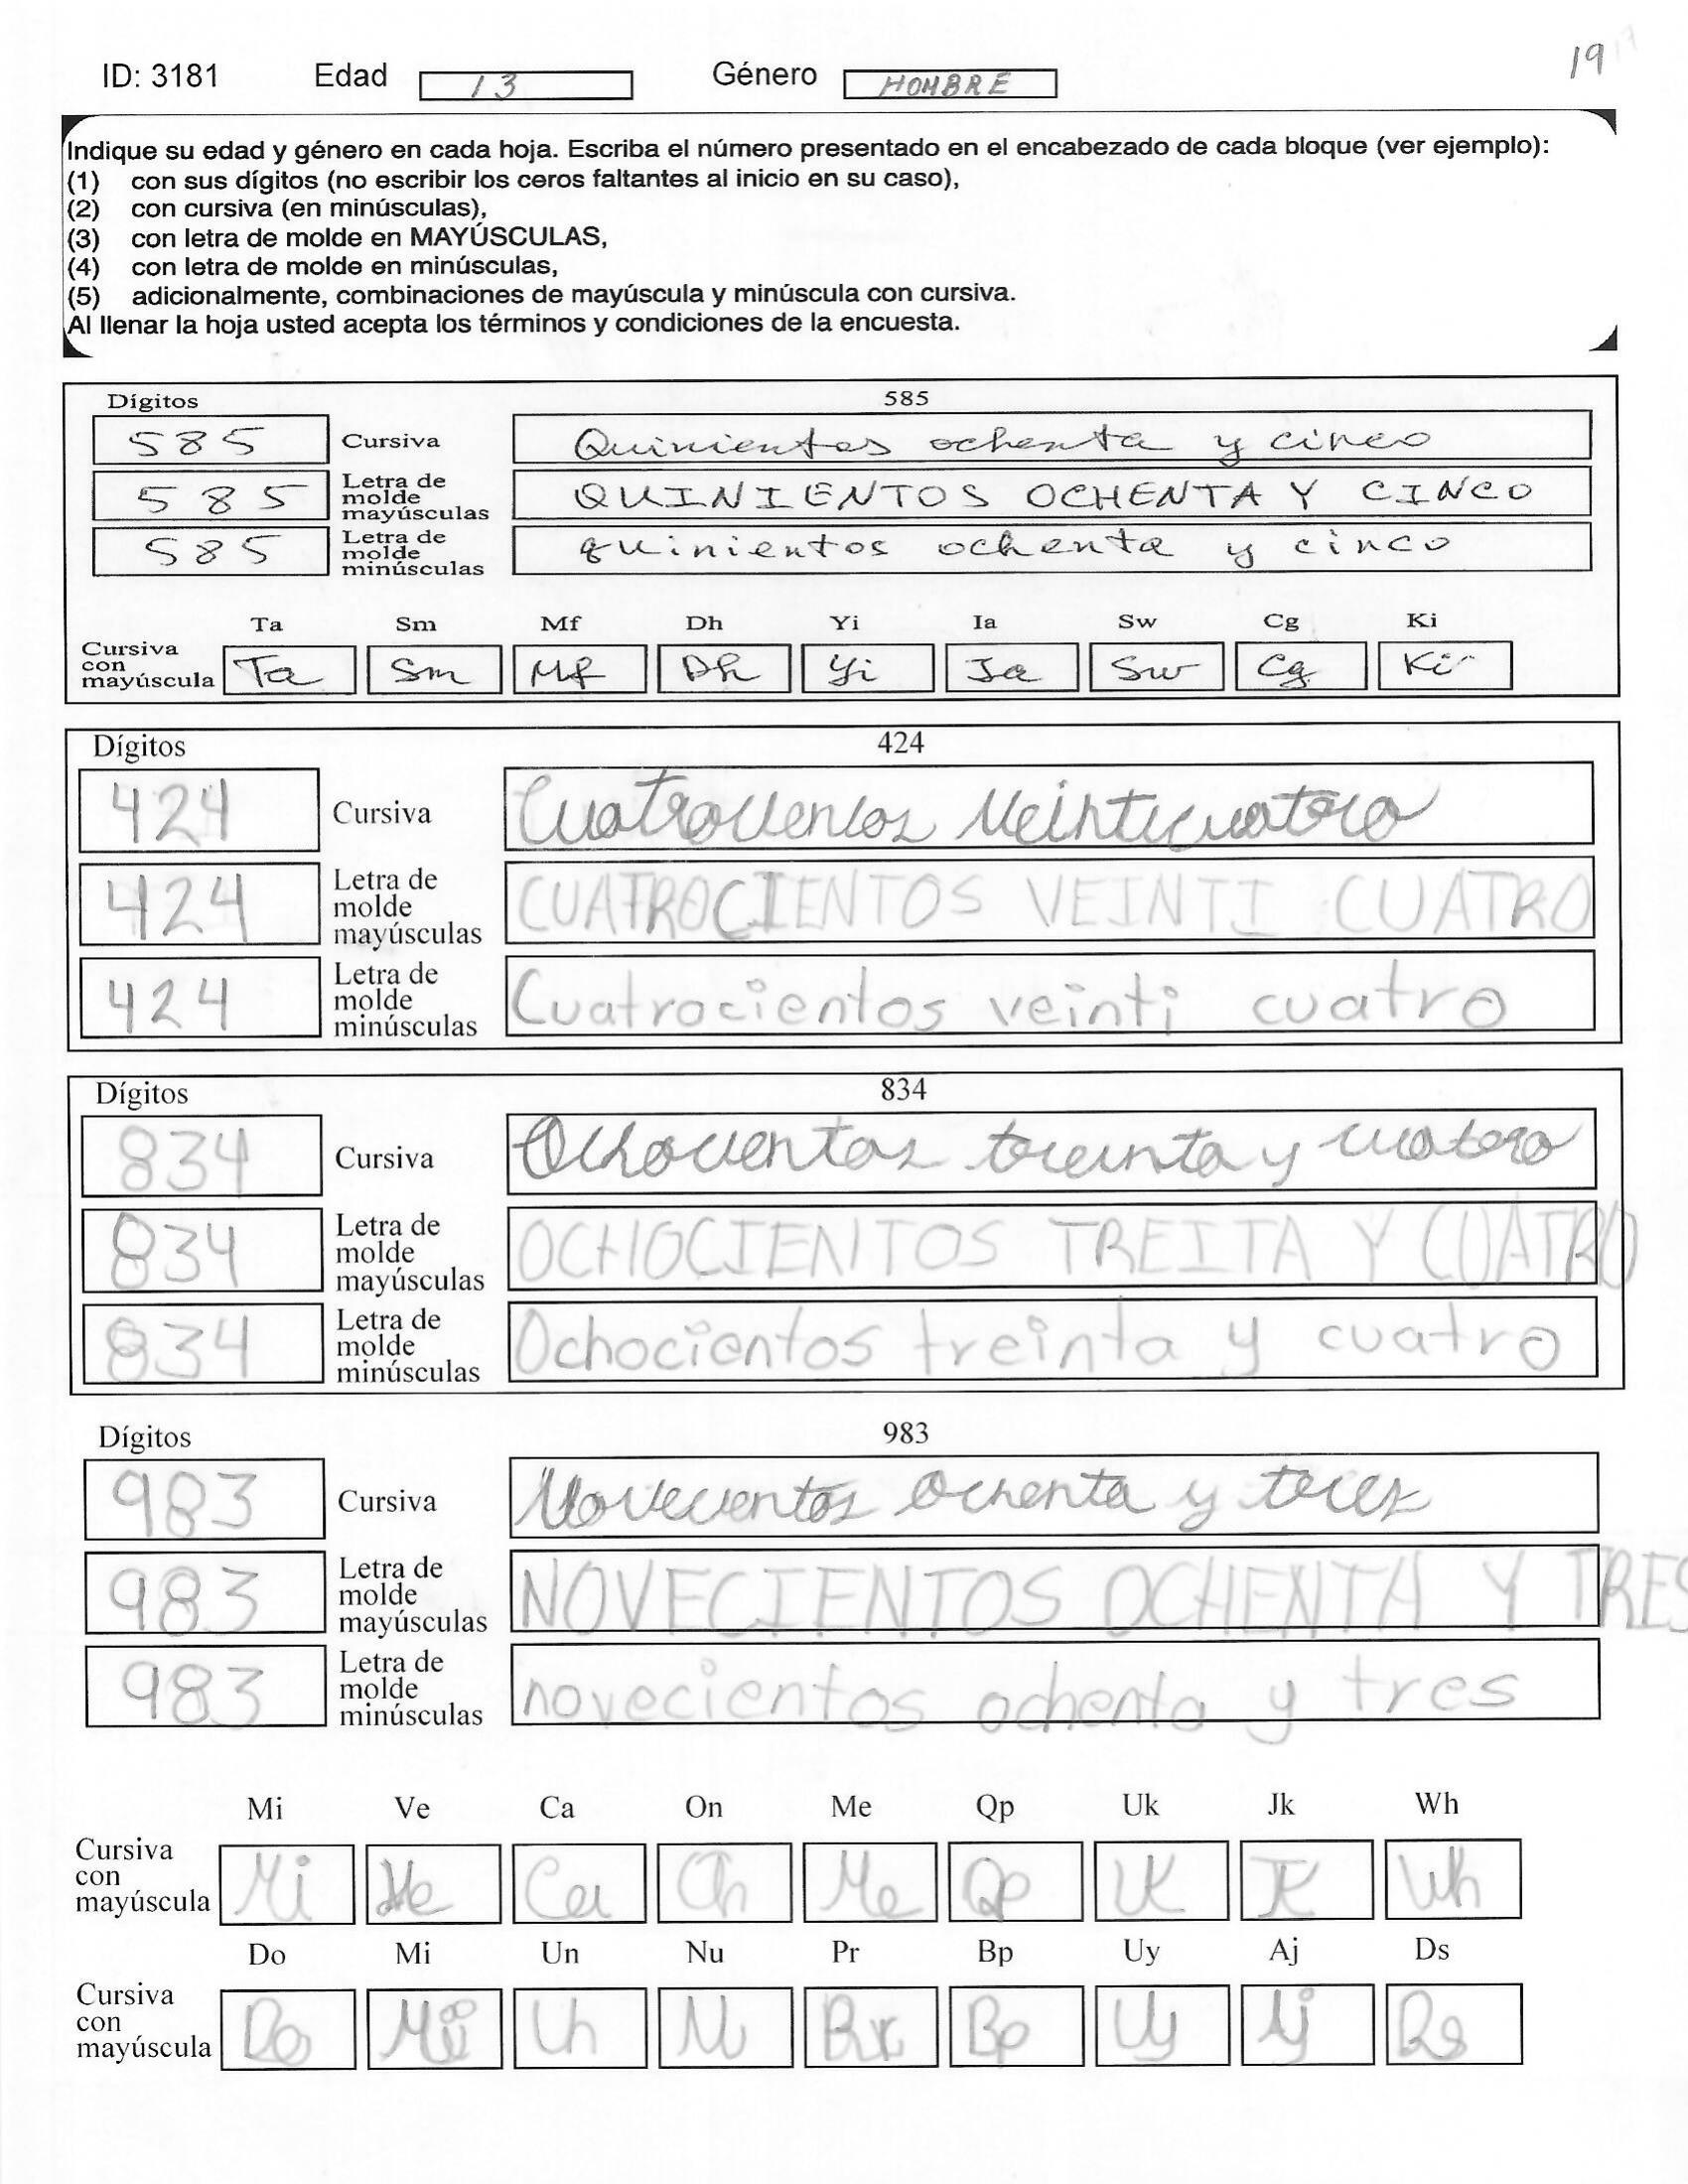 ID: 3181 Edad 13 Género HOMBRE 19
Indique su edad y género en cada hoja. Escriba el número presentado en el encabezado de cada bloque (ver ejemplo):
(1) con sus dígitos (no escribir los ceros faltantes al inicio en su caso),
(2) con cursiva (en minúsculas),
(3) con letra de molde en MAYÚSCULAS,
(4) con letra de molde en minúsculas,
(5) adicionalmente, combinaciones de mayúscula y minúscula con cursiva.
Al llenar la hoja usted acepta los términos y condiciones de la encuesta.
Dígitos 585
585 Cursiva Quinientos ochenta y cinco
585 Letra de molde mayúsculas QUINIENTOS OCHENTA Y CINCO
585 Letra de molde minúsculas quinientos ochenta y cinco
Ta Sm Mf Dh Yi Ia Sw Cg Ki
Cursiva con mayúscula Ta Sm Mf Dh Yi Ia Sw Cg Ki
Dígitos 424
424 Cursiva Cuatrocientos Veinticuatro
424 Letra de molde mayúsculas CUATROCIENTOS VEINTI CUATRO
424 Letra de molde minúsculas Cuatrocientos veinti cuatro
Dígitos 834
834 Cursiva Ochocientos treinta y cuatro
834 Letra de molde mayúsculas OCHOCIENTOS TREITA Y CUATRO
834 Letra de molde minúsculas Ochocientos treinta y cuatro
Dígitos 983
983 Cursiva Novecientos Ochenta y tres
983 Letra de molde mayúsculas NOVECIENTOS OCHENTA Y TRES
983 Letra de molde minúsculas novecientos ochenta y tres
Mi Ve Ca On Me Qp Uk Jk Wh
Cursiva con mayúscula Mi Ve Ca On Me Qp Uk Jk Wh
Do Mi Un Nu Pr Bp Uy Aj Ds
Cursiva con mayúscula Do Mi Un Nu Pr Bp Uy Aj Ds